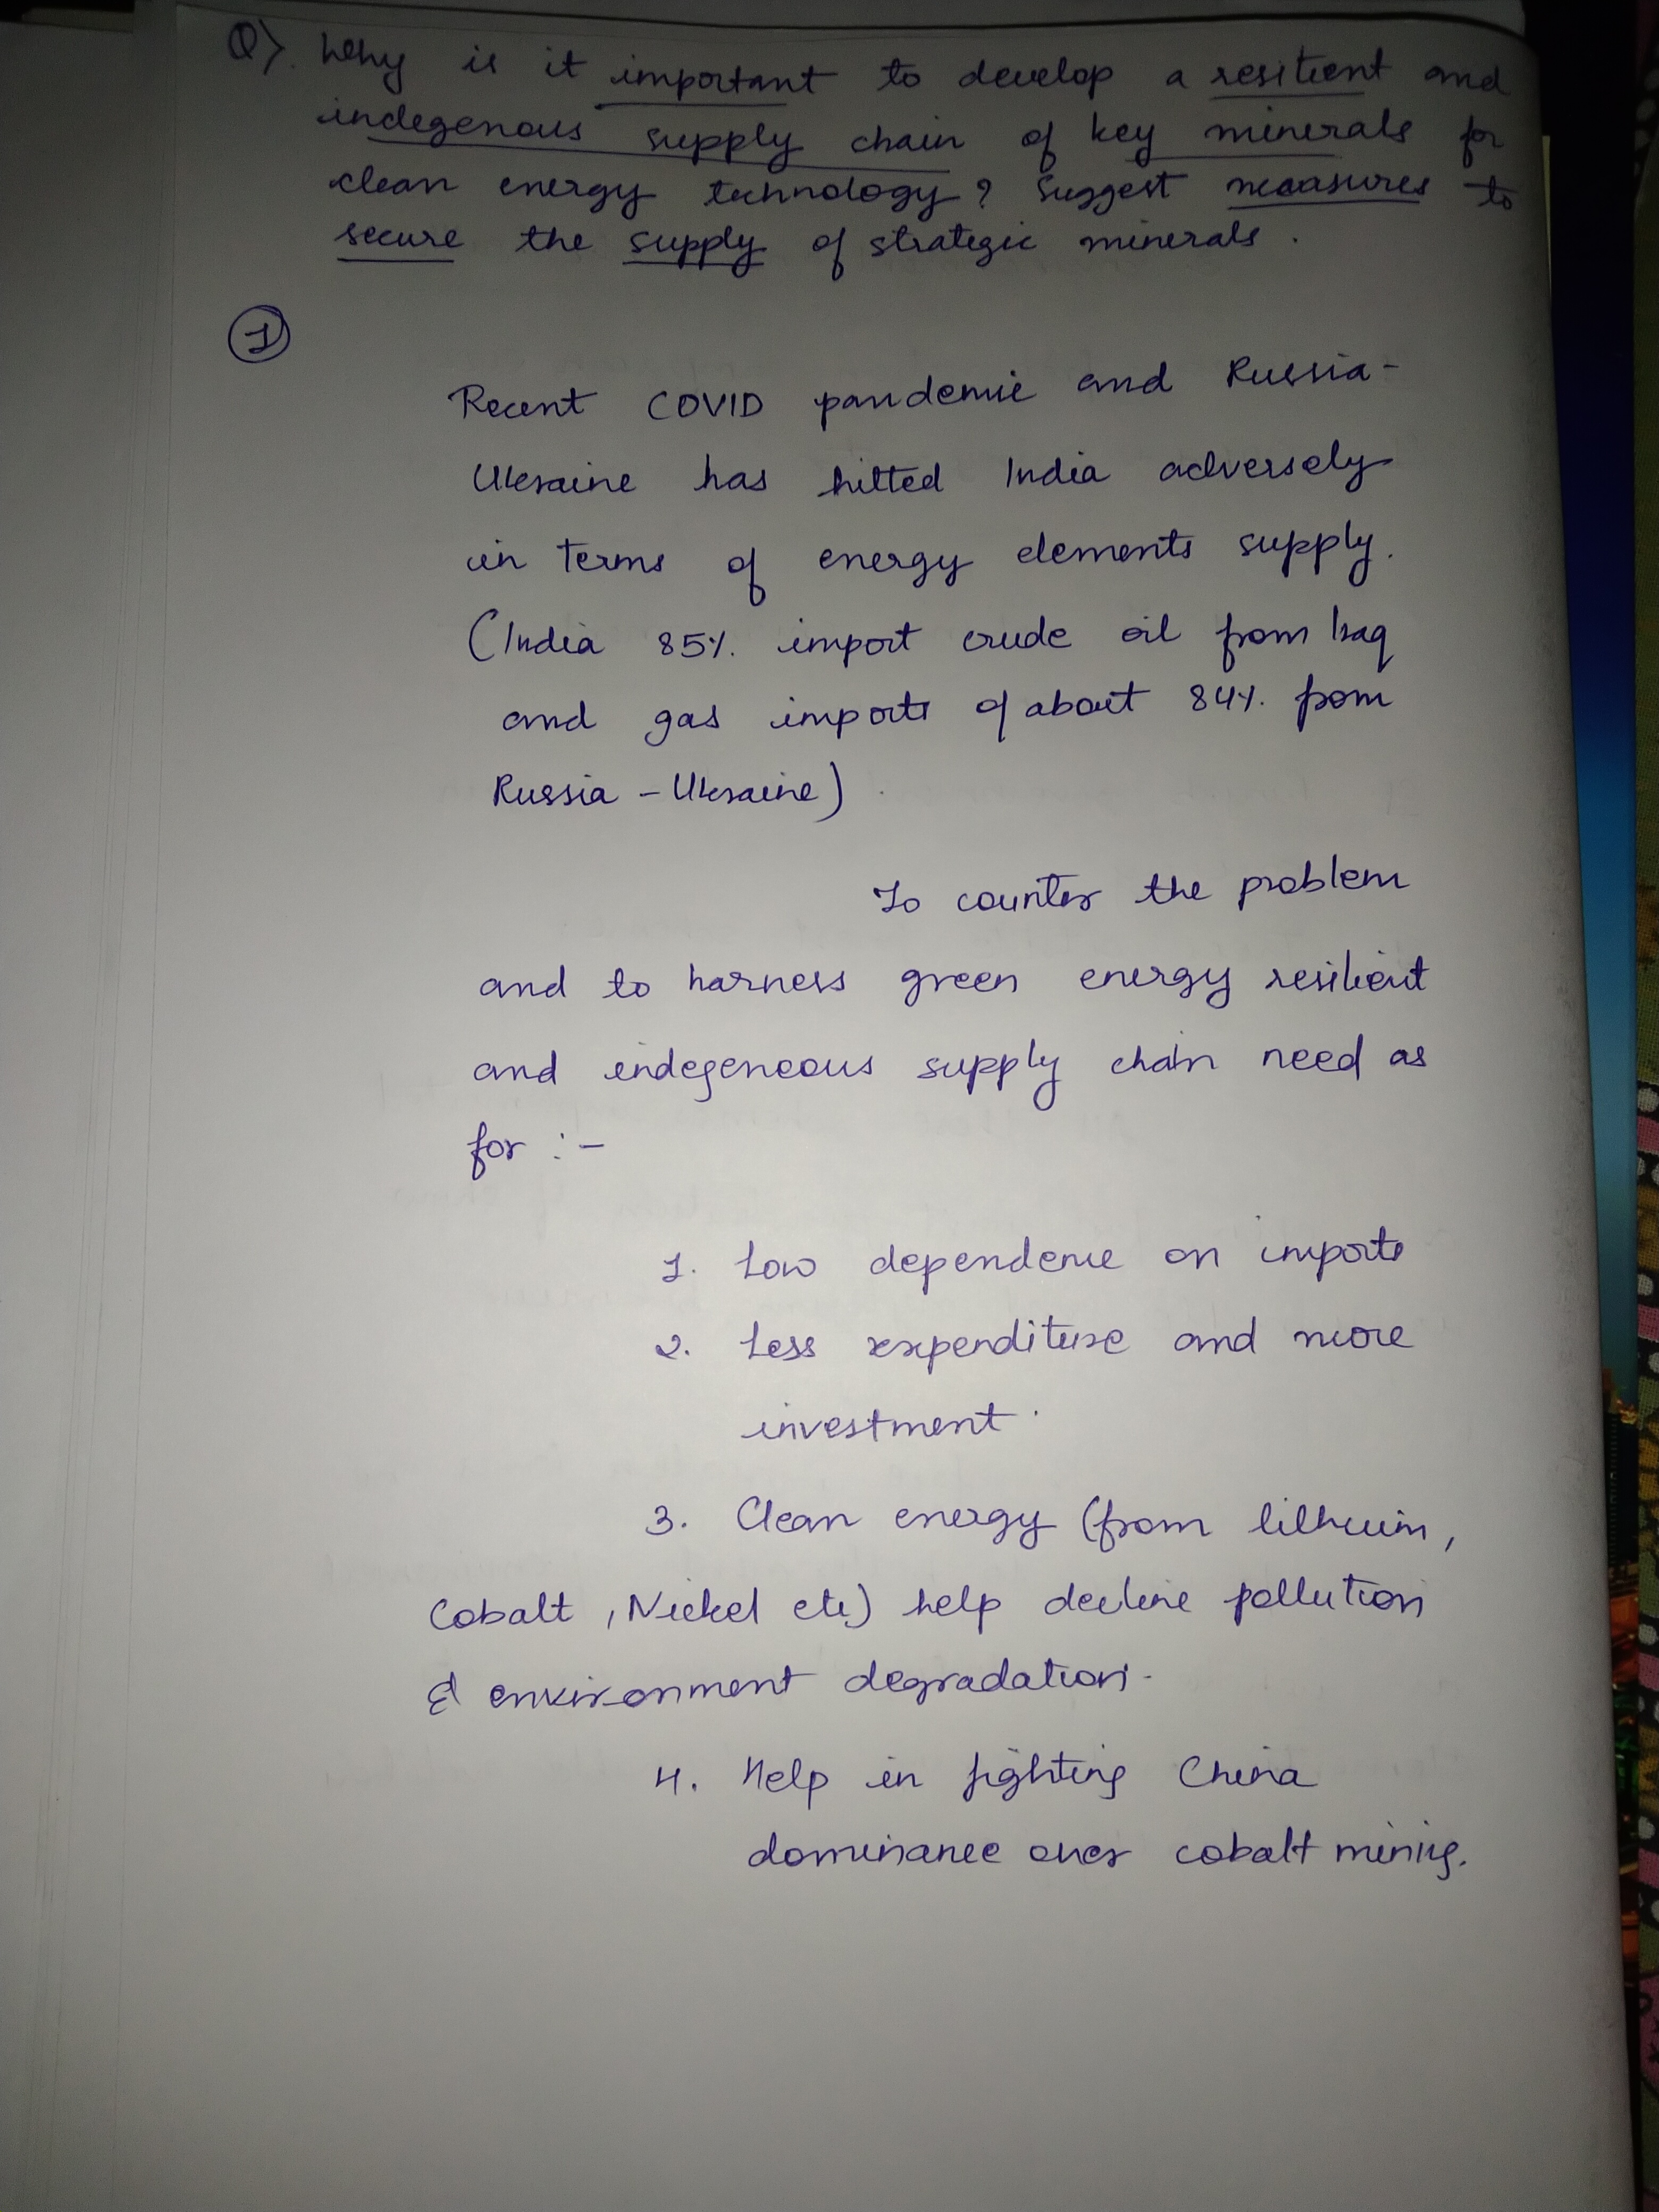 Q). Why is it important to develop a resilient and
indegenous supply chain of key minerals for
clean energy technology? Suggest measures to
secure the supply of strategic minerals.
1
Recent COVID pandemic and Russia-
Ukraine has hitted India adversely
in terms of energy elements supply.
(India 85% import crude oil from Iraq
and gas imports of about 84% from
Russia - Ukraine)
To counter the problem
and to harness green energy resilient
and indegeneous supply chain need as
for :-
1. Low dependence on imports
2. Less expenditure and more
investment.
3. Clean energy (from lithium,
Cobalt, Nickel etc) help decline pollution
& environment degradation.
4. Help in fighting China
dominance over cobalt mining.